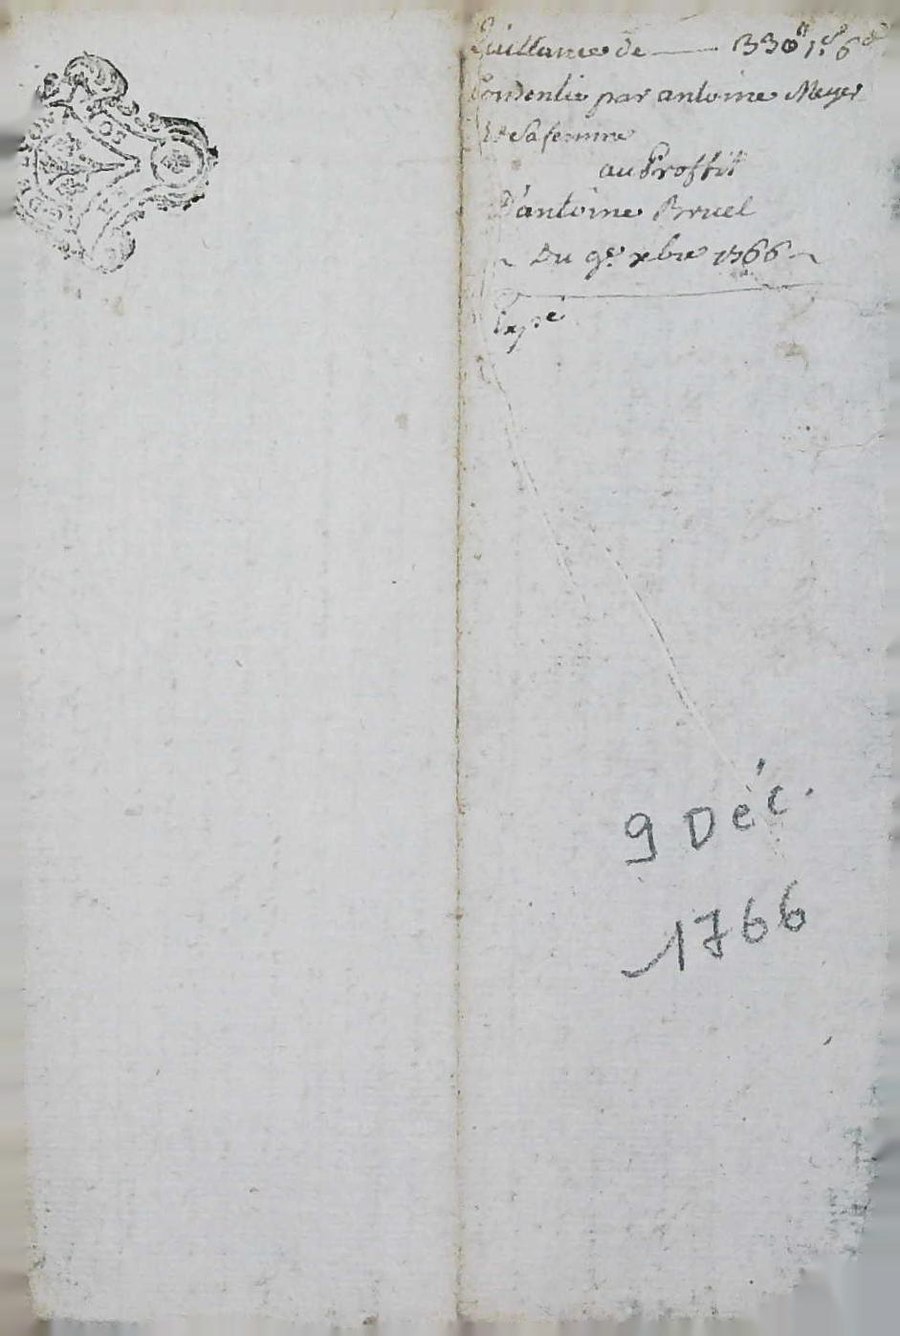 Quittance de — 330ᴴ 1ˢ 6ᵈ
Consentie par antoine Meyer
Et Sa femme
au Proffit
D'antoine Bruel
Du 9ᵉ xbre 1766
Expᵉ
9 Déc.
1766